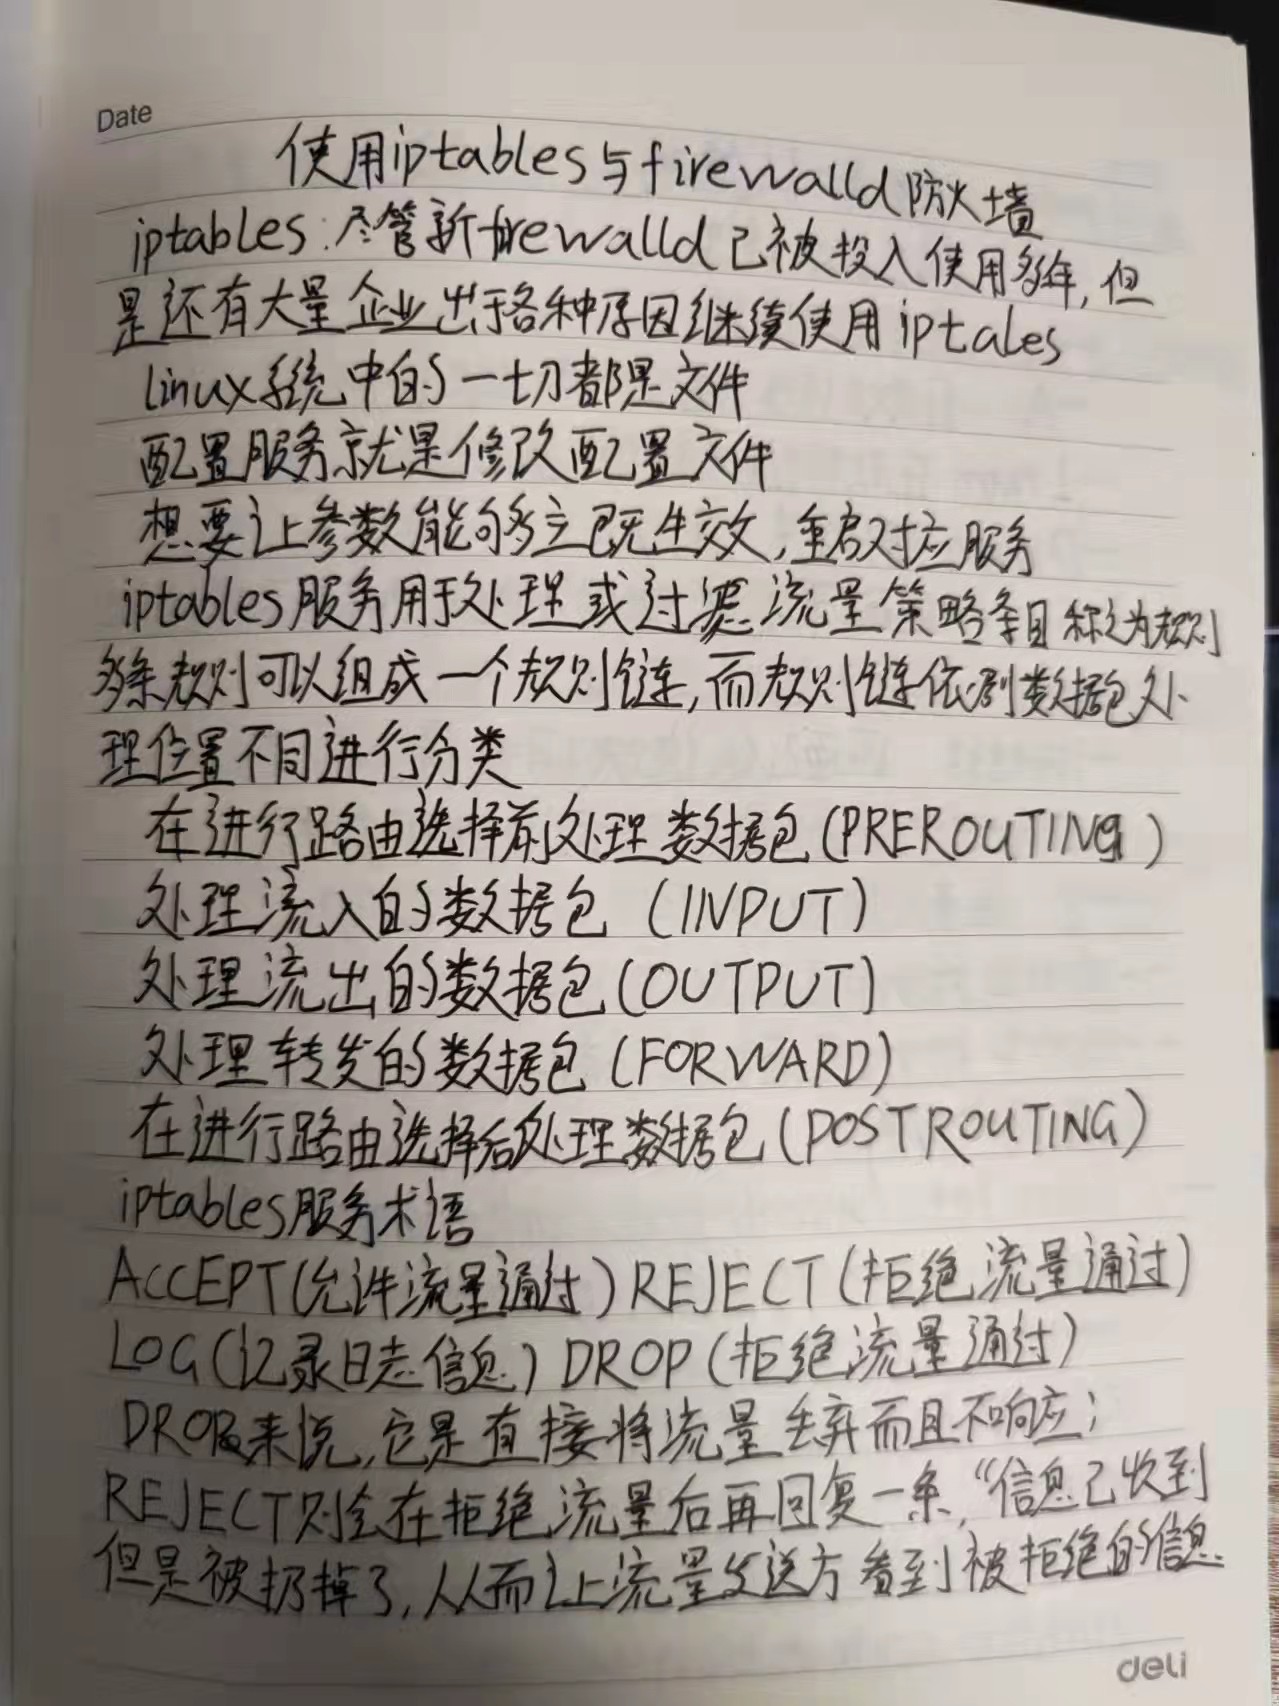 Date
使用iptables与firewalld防火墙
iptables:尽管新firewalld已被投入使用多年,但
是还有大量企业出于各种原因继续使用iptales
linux系统中的一切都是文件
配置服务就是修改配置文件
想要让参数能够立既生效,重启对应服务
iptables服务用于处理或过滤流量策略条目称之为规则
多条规则可以组成一个规则链,而规则链依剧数据包处
理位置不同进行分类
在进行路由选择前处理数据包(PREROUTING)
处理流入的数据包(INPUT)
处理流出的数据包(OUTPUT)
处理转发的数据包(FORWARD)
在进行路由选择后处理数据包(POSTROUTING)
iptables服务术语
ACCEPT(允许流量通过)REJECT(拒绝流量通过)
LOG(记录日志信息)DROP(拒绝流量通过)
DROP来说,它是直接将流量丢弃而且不响应;
REJECT则会在拒绝流量后再回复一条,“信息已收到
但是被扔掉了,从而让流量发送方看到被拒绝的信息.
deli